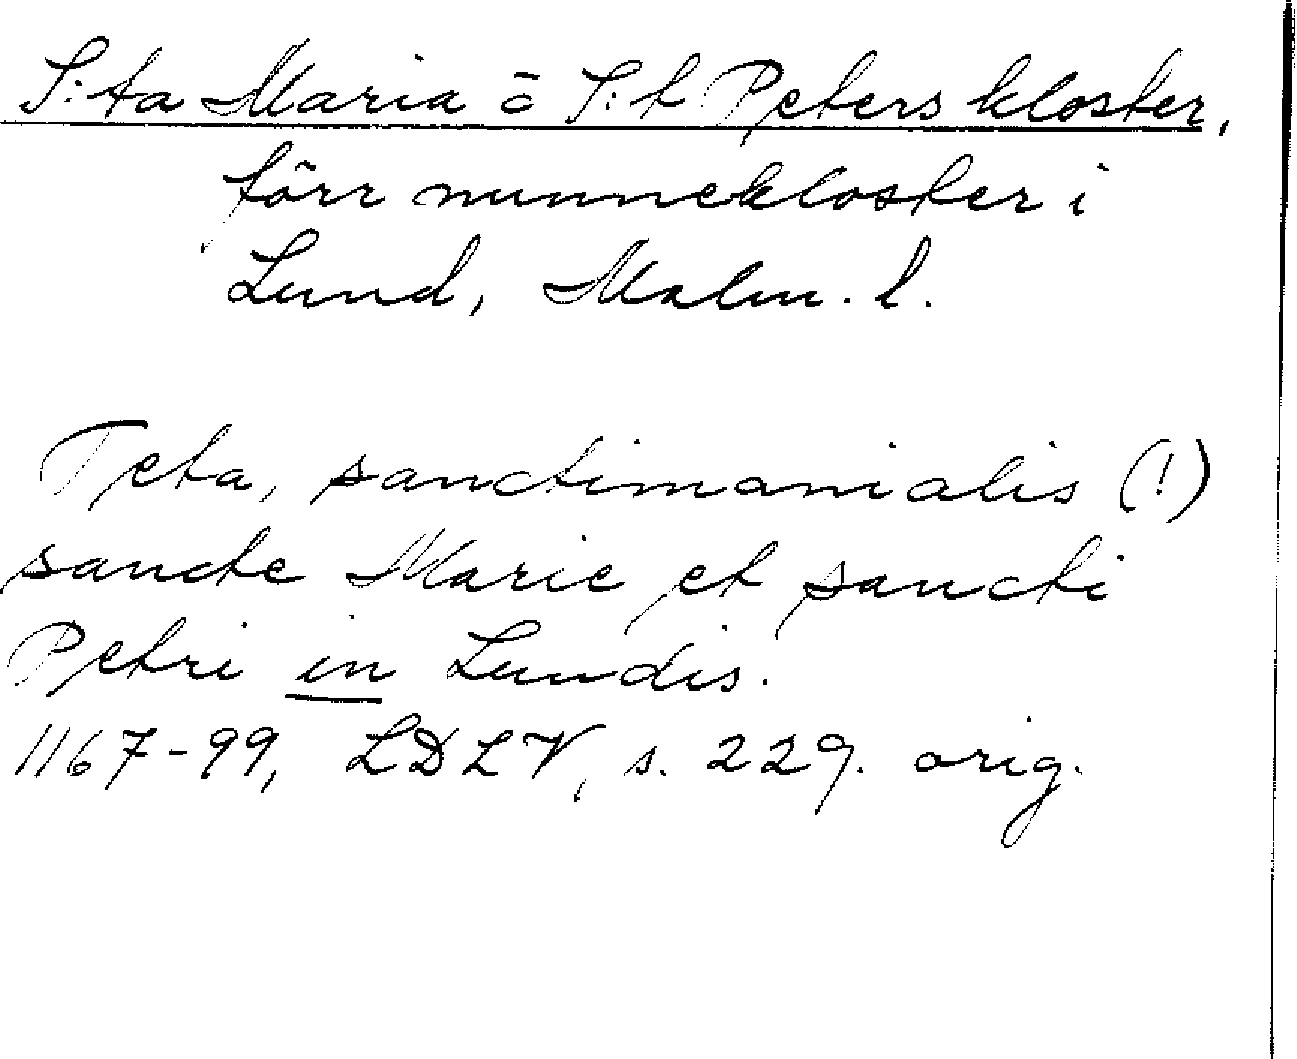 S:ta Maria o S:t Peters kloster,
förr nunnekloster i
Lund, Malm. l.
Teta, sanctimanialis (!)
sancte Marie et sancti
Petri in Lundis.
1167-99, LDLV, s. 229. orig.